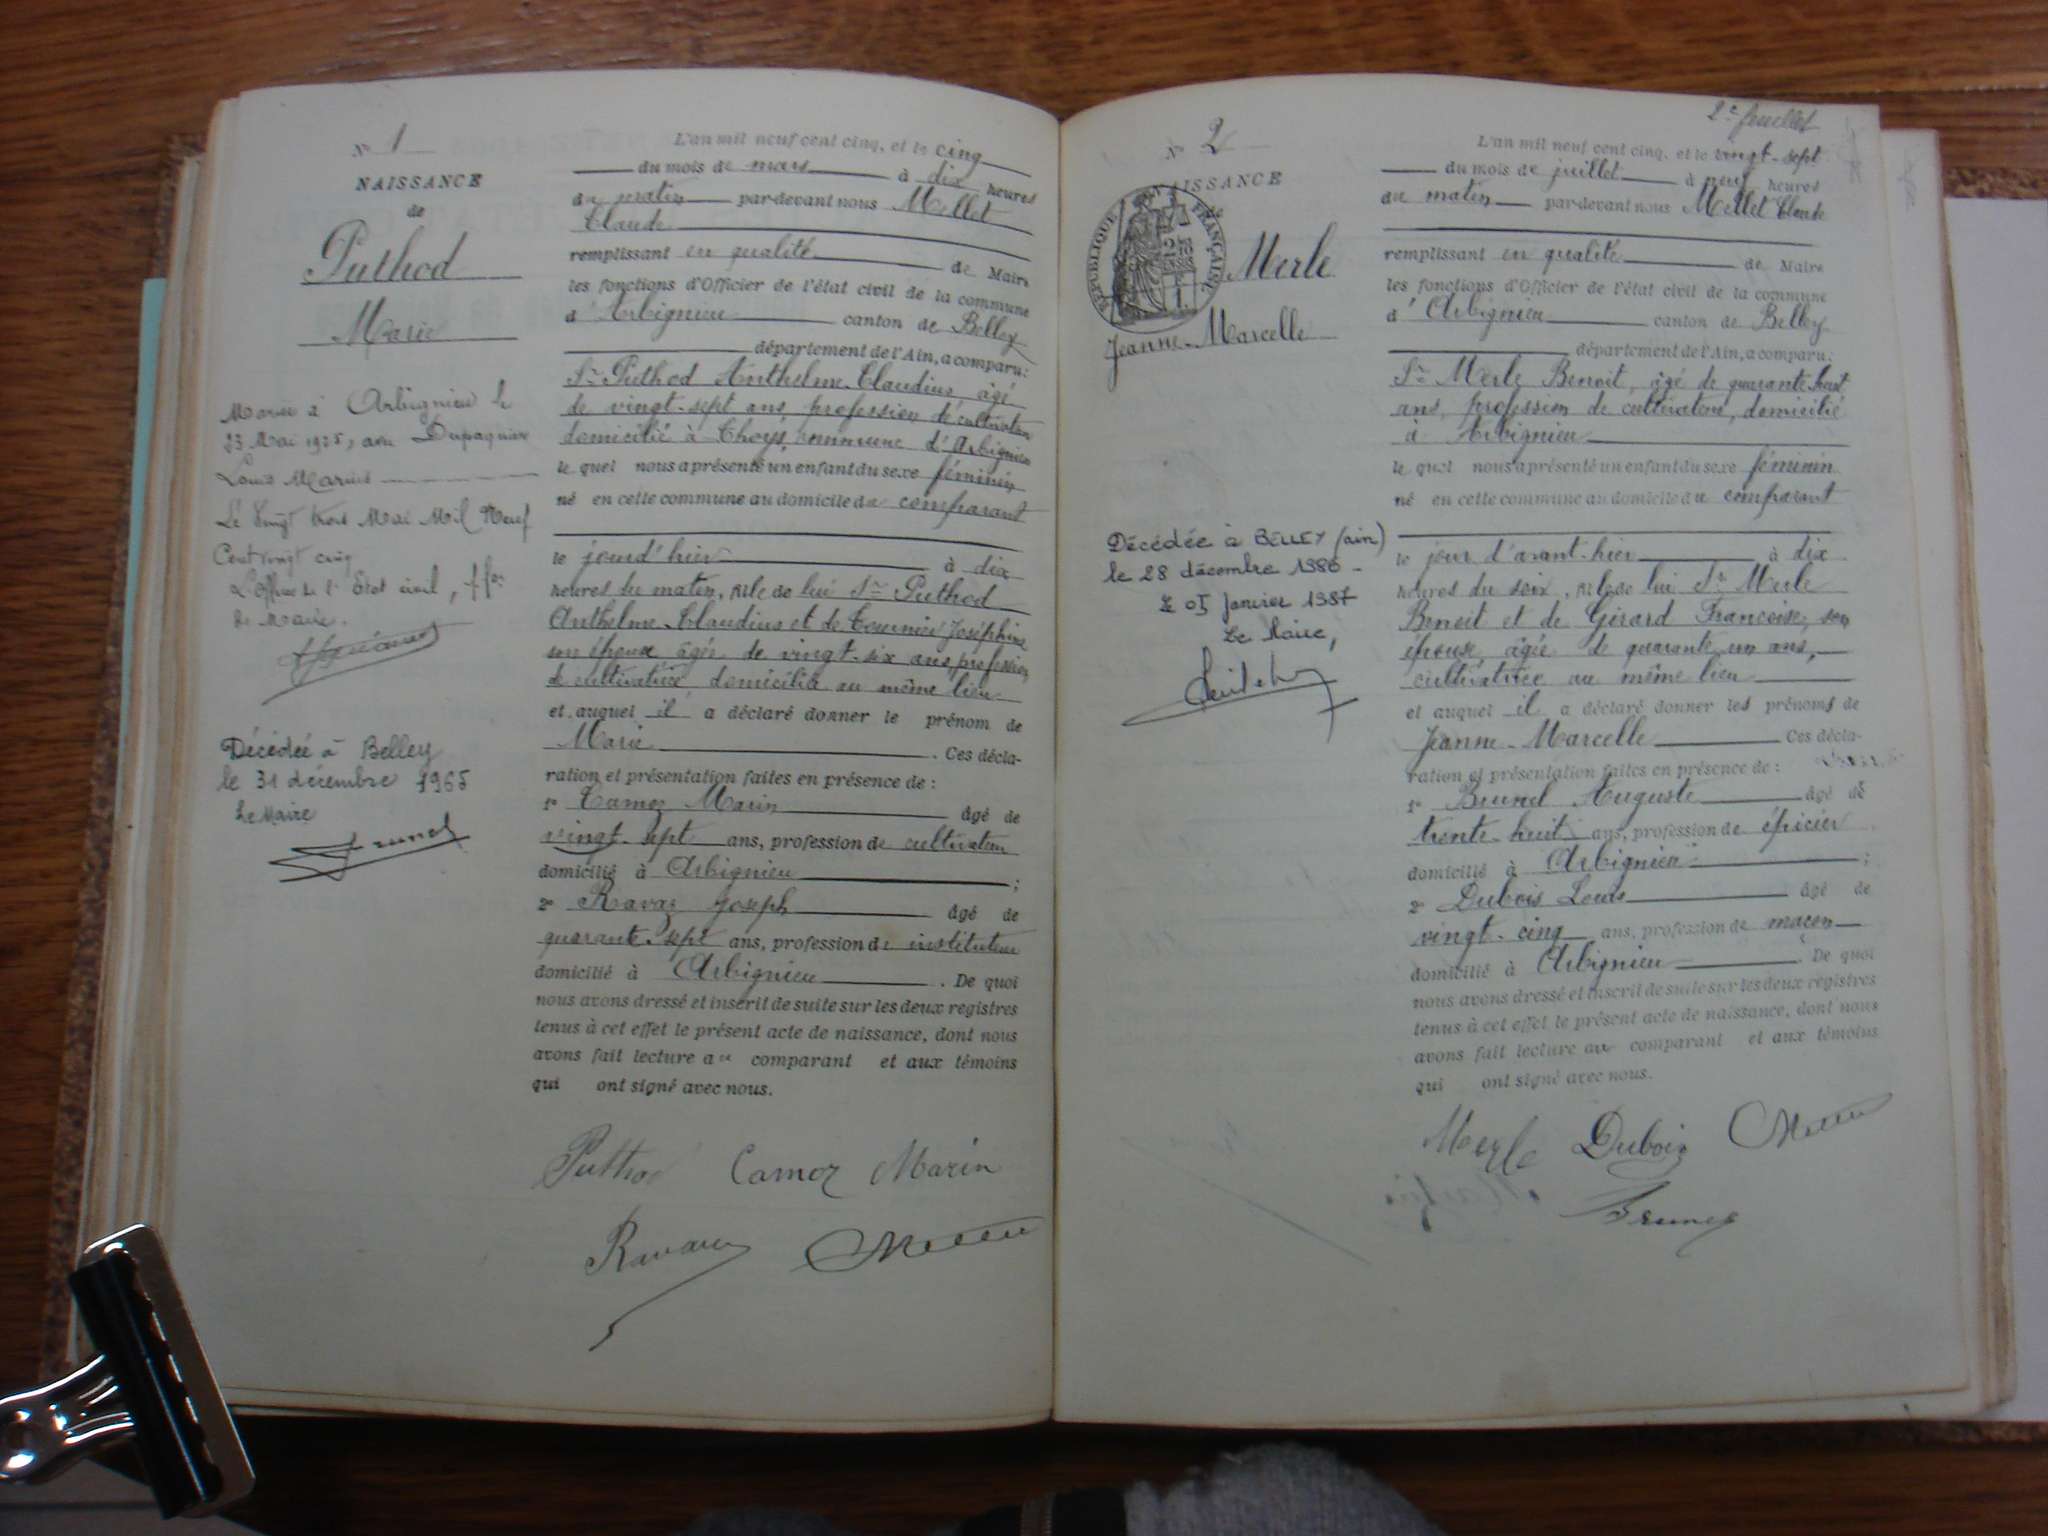 N° 1
NAISSANCE
de
Puthod
Marie
Marié à Arbignieu le
23 Mai 1925, avec Dupasquier
Louis Marius
Le Vingt trois Mai Mil Neuf
Cent vingt cinq
L'Officier de l'Etat civil,
Décédée à Belley
le 31 décembre 1965
Le Maire
Brunel
L'an mil neuf cent cinq, et le cinq
du mois de mars à dix heures
du matin par-devant nous Mellet
Claude
remplissant en qualité de Maire
les fonctions d'Officier de l'état civil de la commune
d'Arbignieu canton de Belley
département de l'Ain, a comparu:
Sr Puthod Anthelme-Claudius, âgé
de vingt-sept ans, profession de cultivateur
domicilié à Thoys, commune d'Arbignieu
le quel nous a présenté un enfant du sexe féminin
né en cette commune au domicile du comparant
le jourd'hier à dix
heures du matin, né de lui Sr Puthod
Anthelme-Claudius et de Tournier Joséphine
son épouse âgée de vingt-six ans, profession
de cultivatrice, domicilia au même lieu
et auquel il a déclaré donner le prénom de
Marie. Ces décla-
ration et présentation faites en présence de :
1° Camoz Marin âgé de
vingt-sept ans, profession de cultivateur
domicilié à Arbignieu ;
2° Ravaz Joseph âgé de
quarante-sept ans, profession de instituteur
domicilié à Arbignieu. De quoi
nous avons dressé et inscrit de suite sur les deux registres
tenus à cet effet le présent acte de naissance, dont nous
avons fait lecture au comparant et aux témoins
qui ont signé avec nous.
Puthod Camoz Marin
Ravaz Mellet
2e feuillet
N° 2
NAISSANCE
de
RÉPUBLIQUE FRANÇAISE
Merle
Jeanne-Marcelle
Décédée à BELLEY (ain)
le 28 décembre 1986
Le 05 Janvier 1987
Le Maire,
L'an mil neuf cent cinq, et le vingt-sept
du mois de juillet à neuf heures
du matin par-devant nous Mellet Claude
remplissant en qualité de Maire
les fonctions d'Officier de l'état civil de la commune
d'Arbignieu canton de Belley
département de l'Ain, a comparu:
Sr Merle Benoit, âgé de quarante-huit
ans, profession de cultivateur, domicilié
à Arbignieu
le quel nous a présenté un enfant du sexe féminin
né en cette commune au domicile du comparant
le jour d'avant-hier à dix
heures du soir, né de lui Sr Merle
Benoit et de Gérard Françoise, son
épouse, âgée de quarante un ans,
cultivatrice au même lieu
et auquel il a déclaré donner les prénoms de
Jeanne-Marcelle Ces décla-
ration et présentation faites en présence de :
1° Brunel Auguste âgé de
trente-huit ans, profession de épicier
domicilié à Arbignieu ;
2° Dubois Louis âgé de
vingt-cinq ans, profession de maçon
domicilié à Arbignieu. De quoi
nous avons dressé et inscrit de suite sur les deux registres
tenus à cet effet le présent acte de naissance, dont nous
avons fait lecture au comparant et aux témoins
qui ont signé avec nous.
Merle Dubois Mellet
Brunel